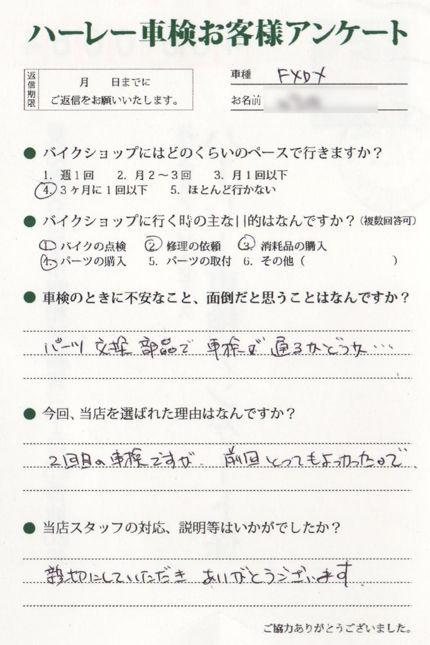 ハーレー車検お客様アンケート
返信期限
月　日までに
ご返信をお願いいたします。
車種 FXDX
お名前
● バイクショップにはどのくらいのペースで行きますか？
1. 週1回　2. 月2～3回　3. 月1回以下
④. 3ヶ月に1回以下　5. ほとんど行かない
● バイクショップに行く時の主な目的はなんですか？(複数回答可)
① バイクの点検　② 修理の依頼　③. 消耗品の購入
④. パーツの購入　5. パーツの取付　6. その他（　　　）
● 車検のときに不安なこと、面倒だと思うことはなんですか？
パーツ 交換 部品で 車検が 通るかどうか…
● 今回、当店を選ばれた理由はなんですか？
2回目の車検ですが、前回とってもよかったので、
● 当店スタッフの対応、説明等はいかがでしたか？
親切にしていただき ありがとうございます
ご協力ありがとうございました。